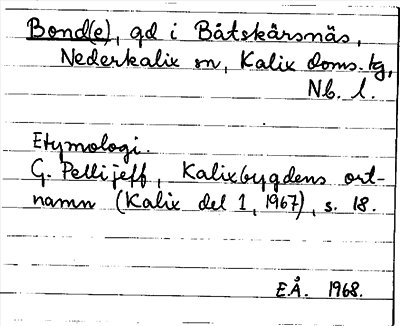 Bond(e), gd i Båtskärsnäs,
Nederkalix sn, Kalix doms.tg,
Nb. l.
Etymologi.
G. Pellijeff, Kalixbygdens ort-
namn (Kalix del 1, 1967), s. 18.
E.Å. 1968.